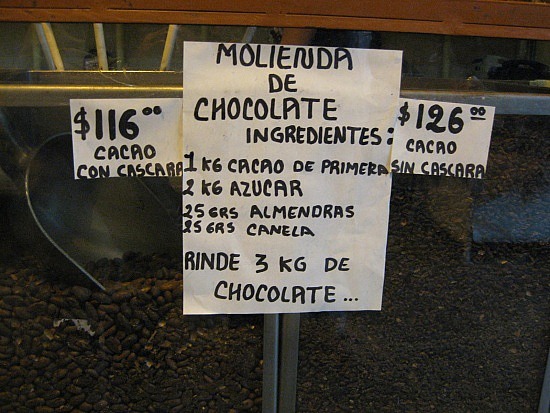 MOLIENDA
DE
CHOCOLATE
INGREDIENTES:
1 KG CACAO DE PRIMERA
2 KG AZUCAR
25 GRS ALMENDRAS
25 GRS CANELA
RINDE 3 KG DE
CHOCOLATE...
$116.00
CACAO
CON CASCARA
$126.00
CACAO
SIN CASCARA